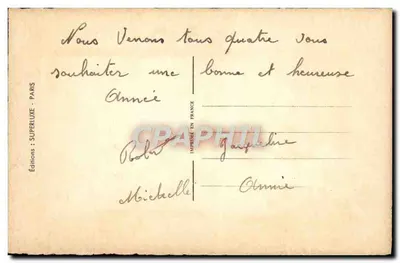 Nous Venons tous quatre vous
souhaiter une bonne et heureuse
Année
Robert Jacqueline
Michelle Annie
Editions : SUPERLUXE - PARIS
IMPRIMÉ EN FRANCE
CRAPHTI